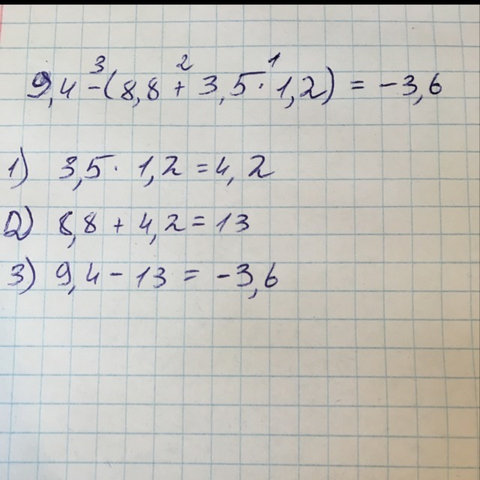 3 2 1
9,4-(8,8+3,5·1,2) = -3,6
1) 3,5·1,2=4,2
2) 8,8+4,2=13
3) 9,4-13 = -3,6